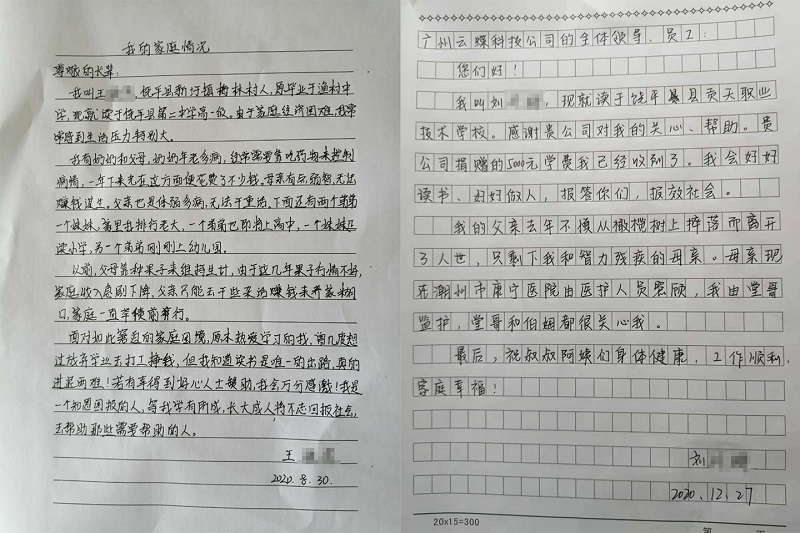 我的家庭情况
尊敬的长辈:
我叫王 ,饶平县新圩镇 林村人,原毕业于渔村中
学,现就读于饶平县第二中学高一级。由于家庭经济困难,我常
常感到生活压力特别大。
我有奶奶和父母,奶奶年老多病,经常需要靠吃药物来控制
病情,一年下来光在这方面便花费了不少钱。母亲有点弱势,无法
赚钱谋生。父亲也是体弱多病,无法干重活。下面还有两个弟弟
一个妹妹,家里我排行老大,一个弟弟也即将上高中,一个妹妹还
读小学,另一个弟弟刚刚上幼儿园。
以前,父母靠种果子来维持生计,由于这几年果子行情不好,
家庭收入急剧下降,父亲只能去干些杂活赚钱来养家糊
口,家庭一直举债前行。
面对如此窘迫的家庭困境,原本热爱学习的我,曾几度想
过放弃学业去打工挣钱,但我知道读书是唯一的出路,真的
进退两难!若有幸得到好心人士援助,我会万分感激!我是
一个知恩回报的人,等我学有所成,长大成人将不忘回报社会,
去帮助那些需要帮助的人。
王
2020.8.30.
广州云蝶科技公司的全体领导、员工:
您们好!
我叫刘 ,现就读于饶平县贡天职业
技术学校。感谢贵公司对我的关心、帮助。贵
公司捐赠的5000元学费我已经收到了。我会好好
读书、好好做人,报答你们,报放社会。
我的父亲去年不慎从橄榄树上摔落而离开
了人世,只剩下我和智力残疾的母亲。母亲现
在潮州市康宁医院由医护人员照顾,我由堂哥
监护,堂哥和伯姆都很关心我。
最后,祝叔叔阿姨们身体健康,工作顺利,
家庭幸福!
刘
2020.12.27
20x15=300
第 页